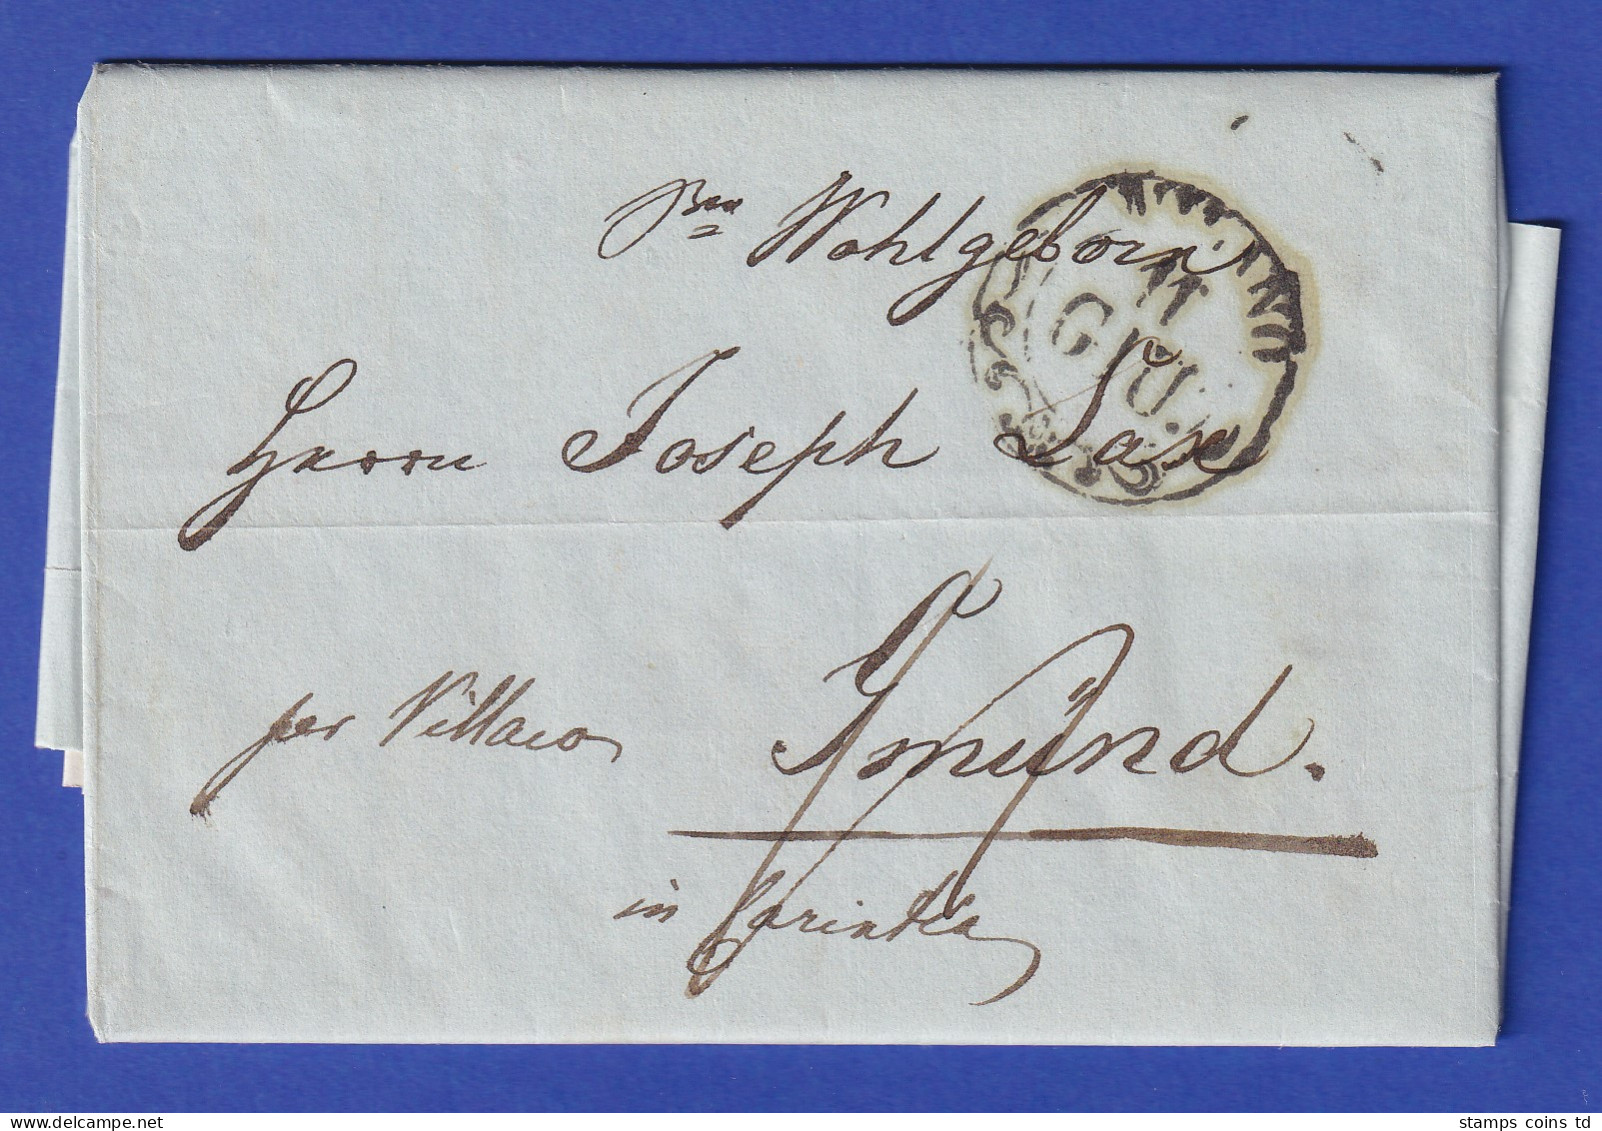 Sr Wohlgeborn
11
GIU.
Herrn Joseph Lax
per Villaco
Gmünd.
in Carinthia
stamps coins td